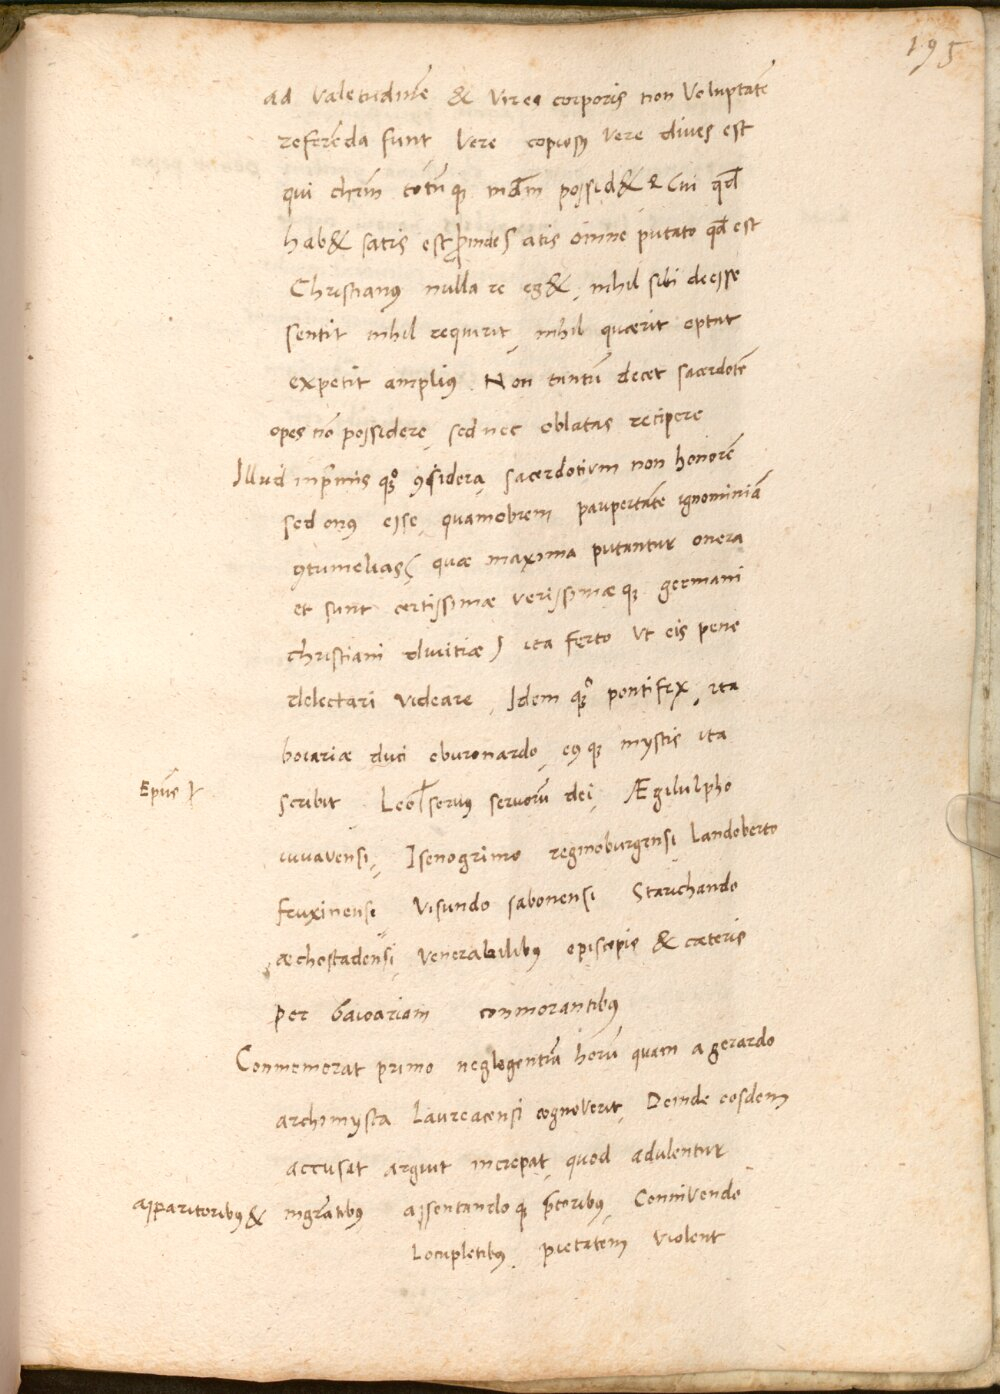 195
ad valetudinẽ & vires corporis non voluptatẽ
referẽda sunt vere copiosꝰ vere dives est
qui chrm̃ totũ qꝫ possid& & Cui qd̃
hab& satis est ꝓinde satis omne putato qd̃ est
Christianꝰ nulla re eg&, nihil sibi deesse
sentit nihil requirit, nihil quærit optat
expetit ampliꝰ. Non tantũ decet sacerdotẽ
opes nõ possidere, sed nec oblatas recipere
Illud inprimis qꝫ ꝯsidera, sacerdotium non honorẽ
sed onꝰ esse, quamobrem paupertãte ignominiã
ꝯtumelias ( quæ maxima putantur onera
et sunt certissimæ verissimæ qꝫ germani
christiani divitiæ ) ita ferto vt eis pene
delectari videare, Idem qꝫ pontifex, ita
boiariæ duci eburonardo, eꝰ qꝫ mystis ita
Epũs
scribit. Leo servꝰ servorũ dei, Ægilulpho
iuvavensi, Isenogrimo reginoburgensi Landoberto
fruxinensi Visundo sabonensi Starichando
æchostadensi, venerabilibꝰ episcopis & cæteris
per baioariam conmorantibꝰ
Conmemorat primo neglegentiã horũ quam a gerardo
archimysta Laureacensi cognoverit, Deinde eosdem
accusat arguit increpat, quod adulentur
apparitoribꝰ & assentando qꝫ Connivendo
Locupletibꝰ, pietatem violent